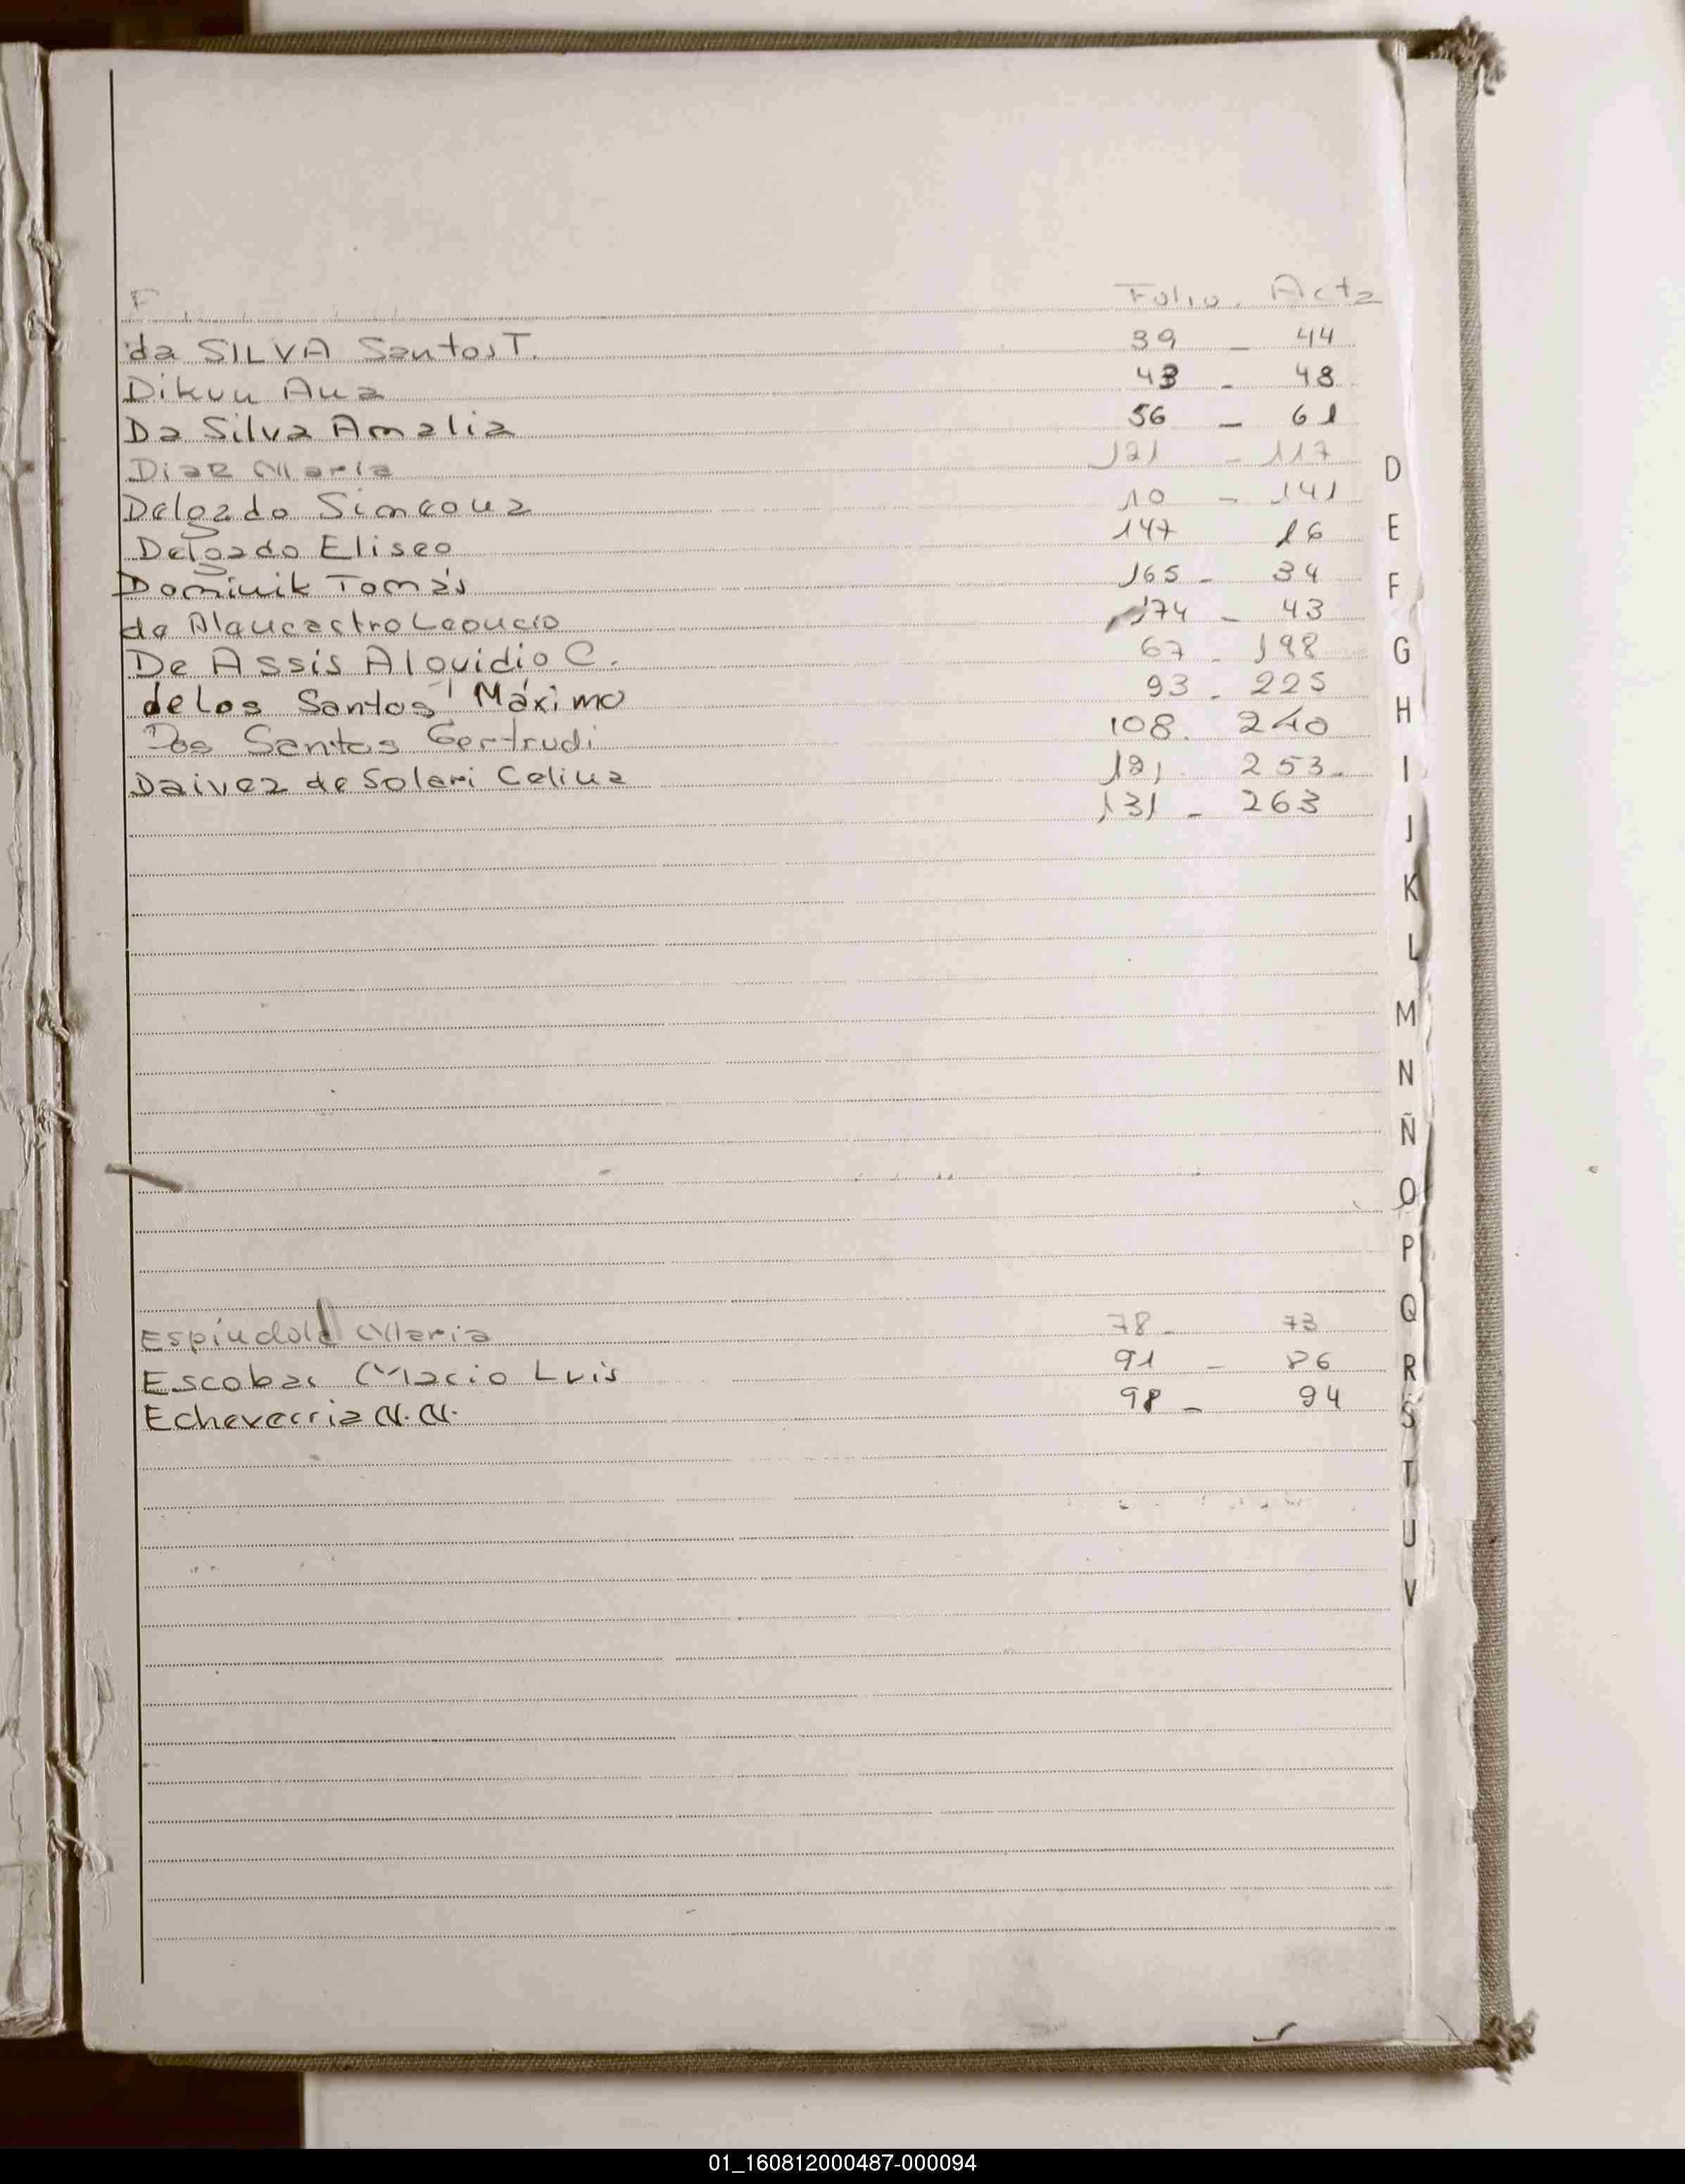 Folio. Acta
da SILVA Santos T. 39 - 44
Dikun Ana 43 - 48
Da Silva Amalia 56 - 61
Diaz Maria 121 - 117
Delgado Simeona 10 - 141
Delgado Eliseo 147 16
Dominik Tomás 165 - 34
de Alancastro Leoncio 174 - 43
De Assis Alouidio C. 67 - 198
de los Santos Máximo 93 - 225
Dos Santos Gertrudi 108. 240
Daivez de Solari Celina 121 253-
131 - 263
Espindola Maria 78 - 73
Escobar Mario Luis 91 - 86
Echeverria N.N. 98 - 94
D
E
F
G
H
I
J
K
L
M
N
Ñ
O
P
Q
R
S
T
U
V
01_160812000487-000094